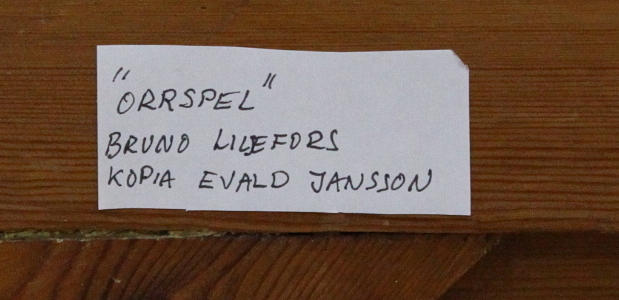 "ORRSPEL"
BRUNO LILJEFORS
KOPIA EVALD JANSSON